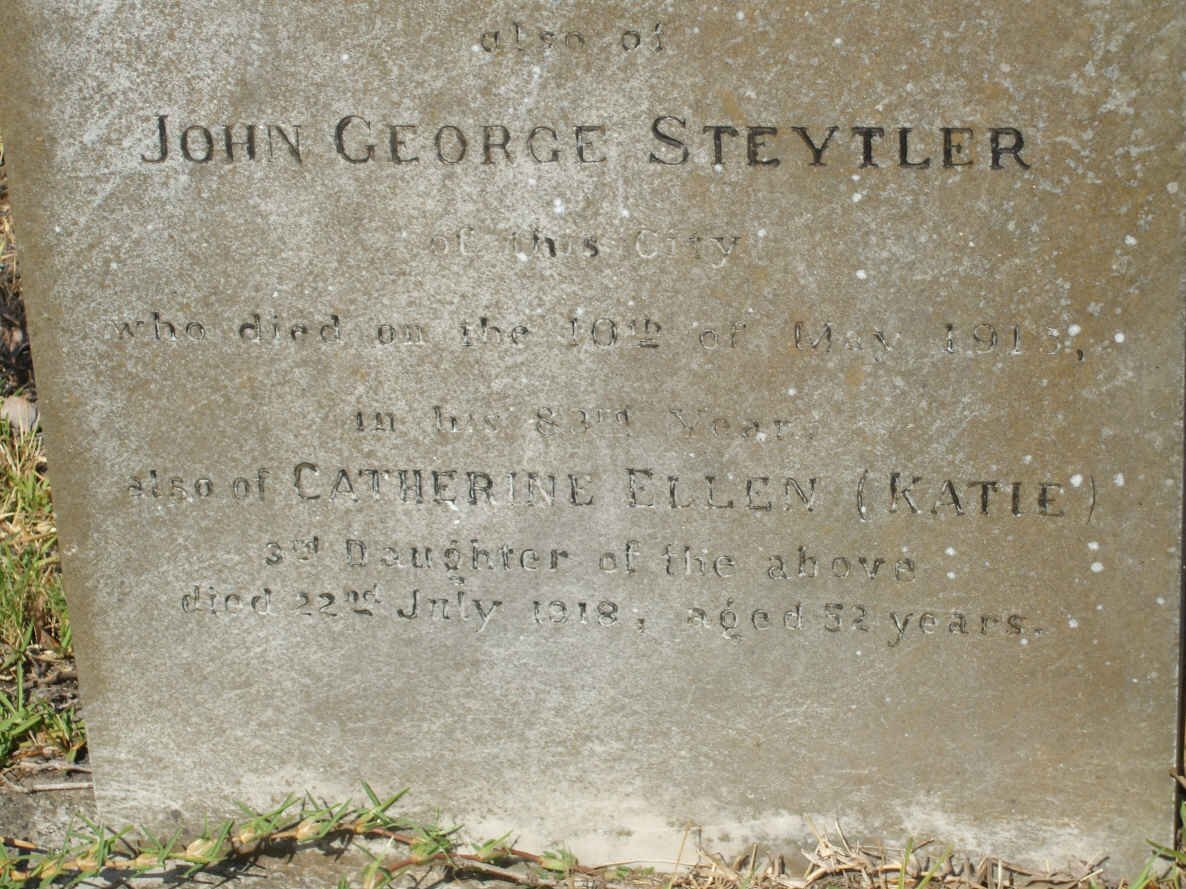 also of
JOHN GEORGE STEYTLER
of this City
who died on the 10th of May 1913,
in his 83rd Year,
also of CATHERINE ELLEN (KATIE)
3rd Daughter of the above
died 22nd July 1918, aged 52 years.